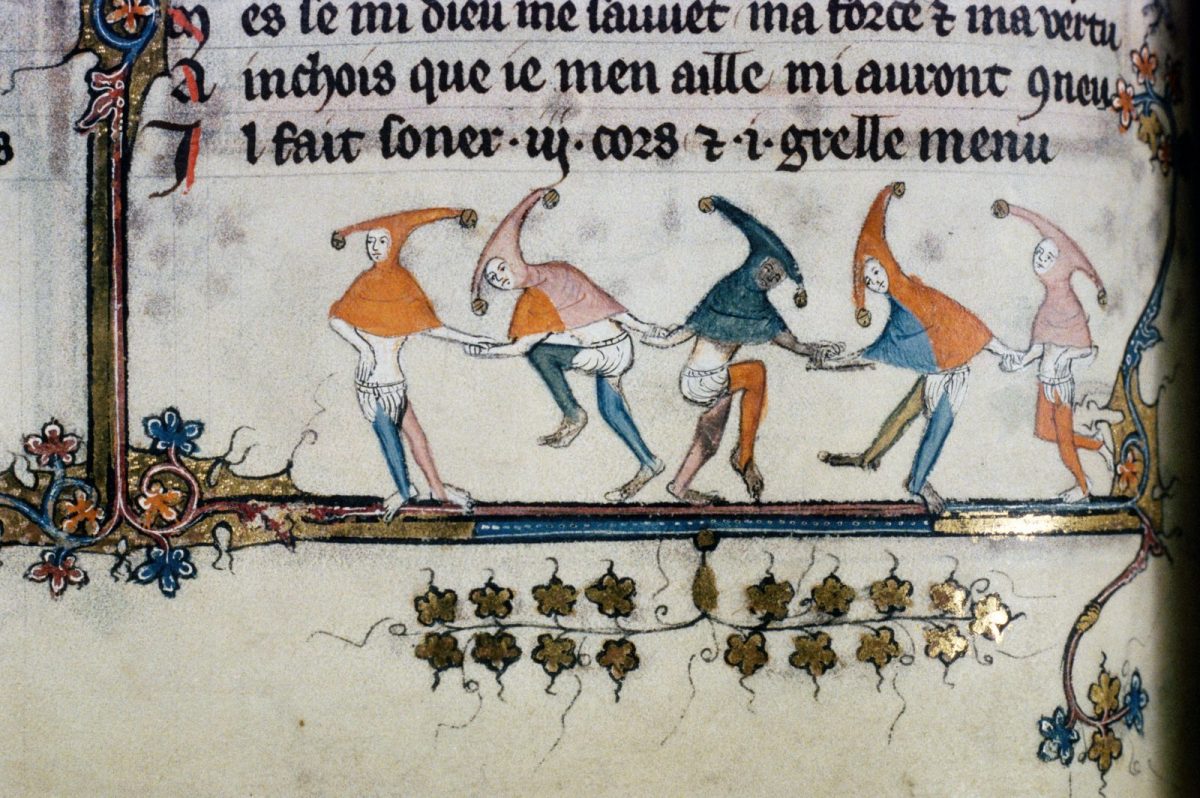 M es se mi dieu me sauuet ma force ⁊ ma vertu
A inchois que ie men aille mi auront ꝯneu
I l fait soner · iij · cors ⁊ · i · grelle menu